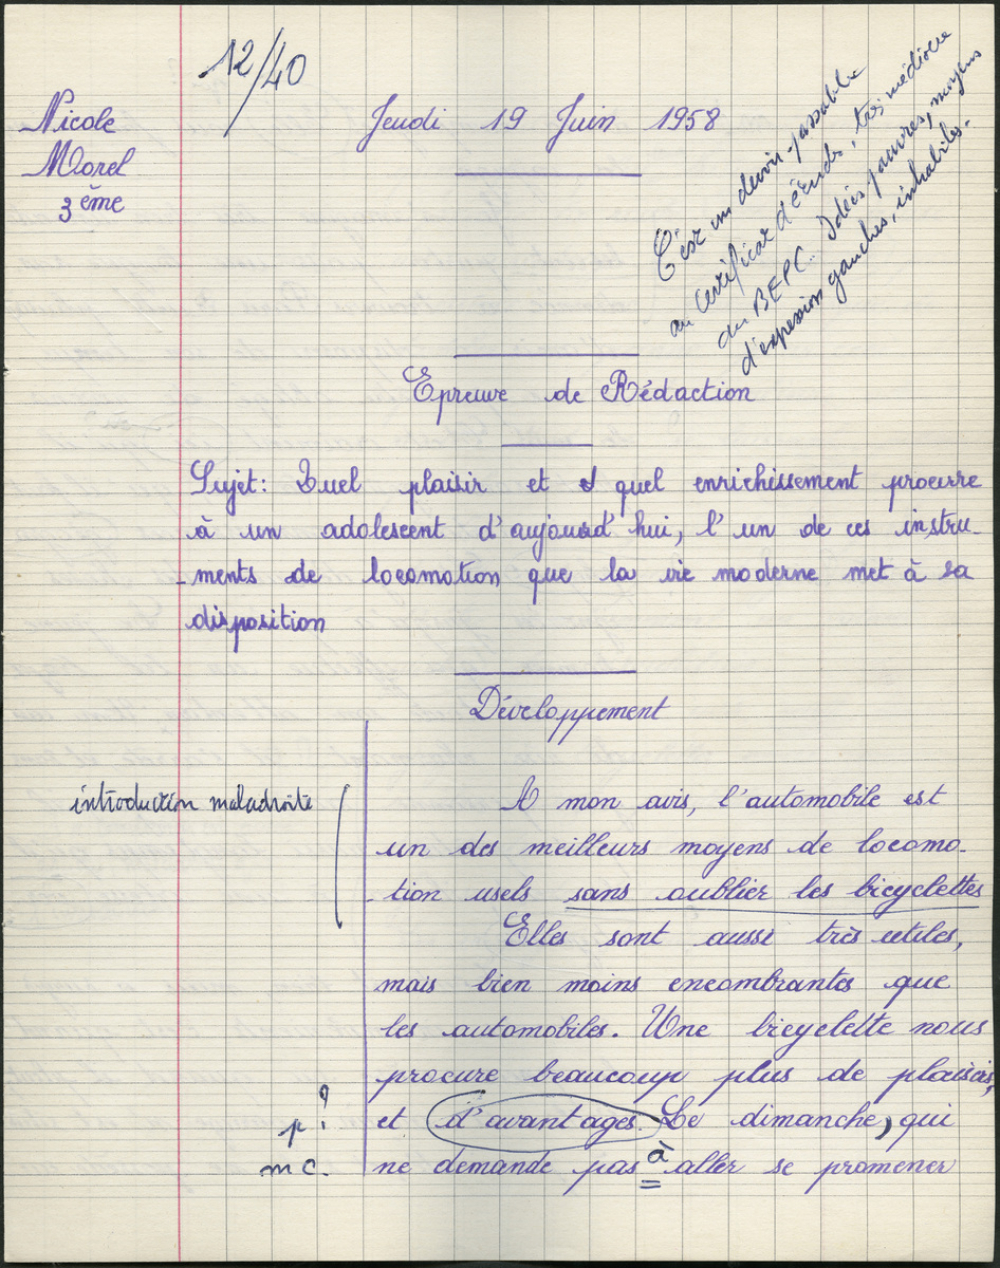 12/40
Nicole
Morel
3ème
Jeudi 19 Juin 1958
C'est un devoir passable
au certificat d'études, très médiocre
au BEPC. Idées pauvres, moyens
d'expression gauches, inhabiles.
Epreuve de Rédaction
Sujet: Quel plaisir et quel enrichissement procure
à un adolescent d'aujourd'hui, l'un de ces instru-
-ments de locomotion que la vie moderne met à sa
disposition
Développement
introduction maladroite
A mon avis, l'automobile est
un des meilleurs moyens de locomo-
-tion usels sans oublier les bicyclettes
Elles sont aussi très utiles,
mais bien moins encombrantes que
les automobiles. Une bicyclette nous
procure beaucoup plus de plaisirs,
p? et d'avantages. Le dimanche, qui
mc. ne demande pas à aller se promener